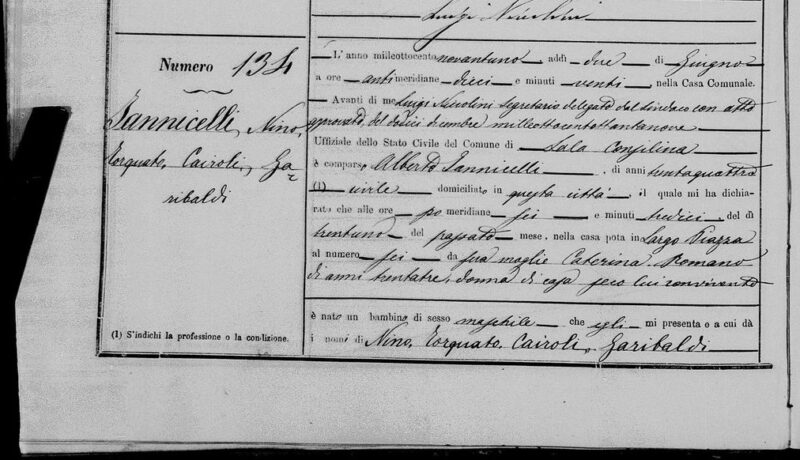 Luigi Nicolini
Numero 134
Iannicelli, Nino,
Torquato, Cairoli, Ga=
ribaldi
(1) S'indichi la professione o la condizione.
L'anno milleottocento novantuno, addì due di Giugno
a ore anti meridiane dieci e minuti venti, nella Casa Comunale.
Avanti di me Luigi Nicolini Segretario delegato del Sindaco con atto
approvato, del dodici dicembre milleottocentottantanove
Uffiziale dello Stato Civile del Comune di Sala Consilina
è comparso Alberto Iannicelli, di anni trentaquattro
(1) civile domiciliato in questa città, il quale mi ha dichia-
rato che alle ore po meridiane sei e minuti tredici, del dì
trentuno del passato mese, nella casa posta in Largo Piazza
al numero sei da sua moglie Caterina Romano
di anni trentatre, donna di casa seco lui convivente
è nato un bambino di sesso maschile che egli mi presenta e a cui dà
i nomi di Nino, Torquato, Cairoli, Garibaldi